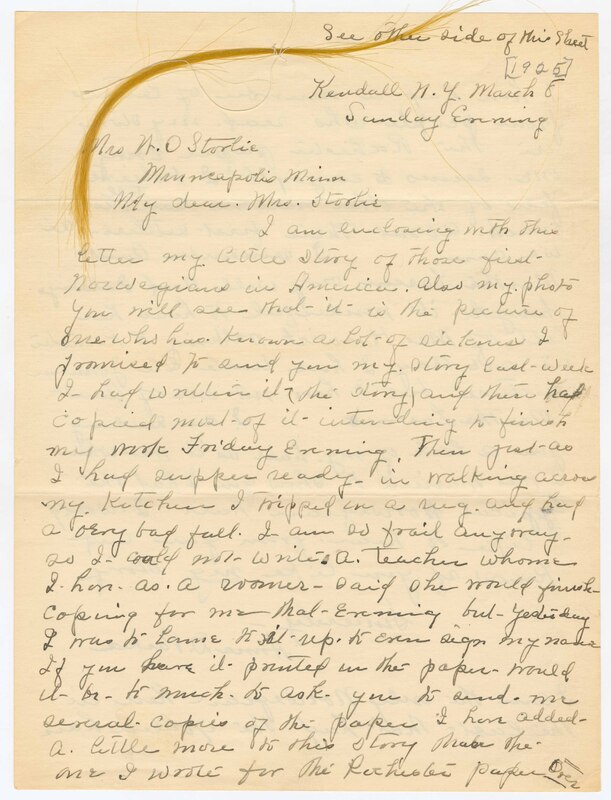 See other side of this Sheet
[1925]
Kendall N. Y. March 8
Sunday Evening
Mrs W. O Storlie
Minneapolis Minn
My dear. Mrs. Storlie
I am enclosing with this
letter my little Story of those first-
Norwegians in America. Also my. photo
You will see that-it-is the picture of
one who has. Known a lot-of sickness I
promised to send you my. story last-week
I-had written it (the story) and then had
copied most-of it-intending to finish
my work Friday Evening. Then just-as
I had supper ready-in walking across
my. Kitchen I tripped in a rug. and had
a very bad fall. I am so frail anyway-
so I-could not-write. A. teacher whome
I-have. as. a roomer-said she would finish
coping for me that-Evening but-Yesterday
I was to lame to sit-up. to even sign my name
If you have it-printed in the paper-would
it-be-to much-to ask-you to send-me
several-copies of the paper I have added-
a. little more to this Story than the-
one I wrote for the Rochester paper Over